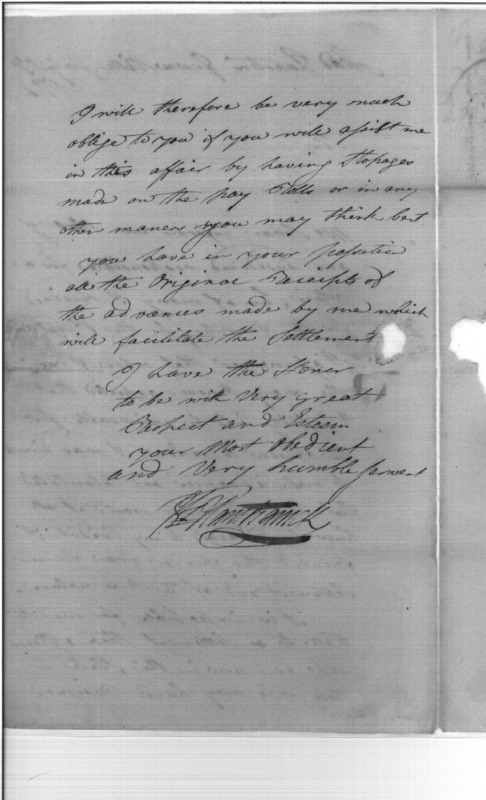 I will therefore be very much
oblige to you if you will assist me
in this affair by having Stopages
made on the pay Rolls or in any
other maner you may think best
you have in your possetie
all the Original Receipts of
the advences made by me which
will facilitate the Settlement
I have the Honor
to be with Very great
Respect and Esteem
your Most Obedient
and Very humble servent
Hamtramck